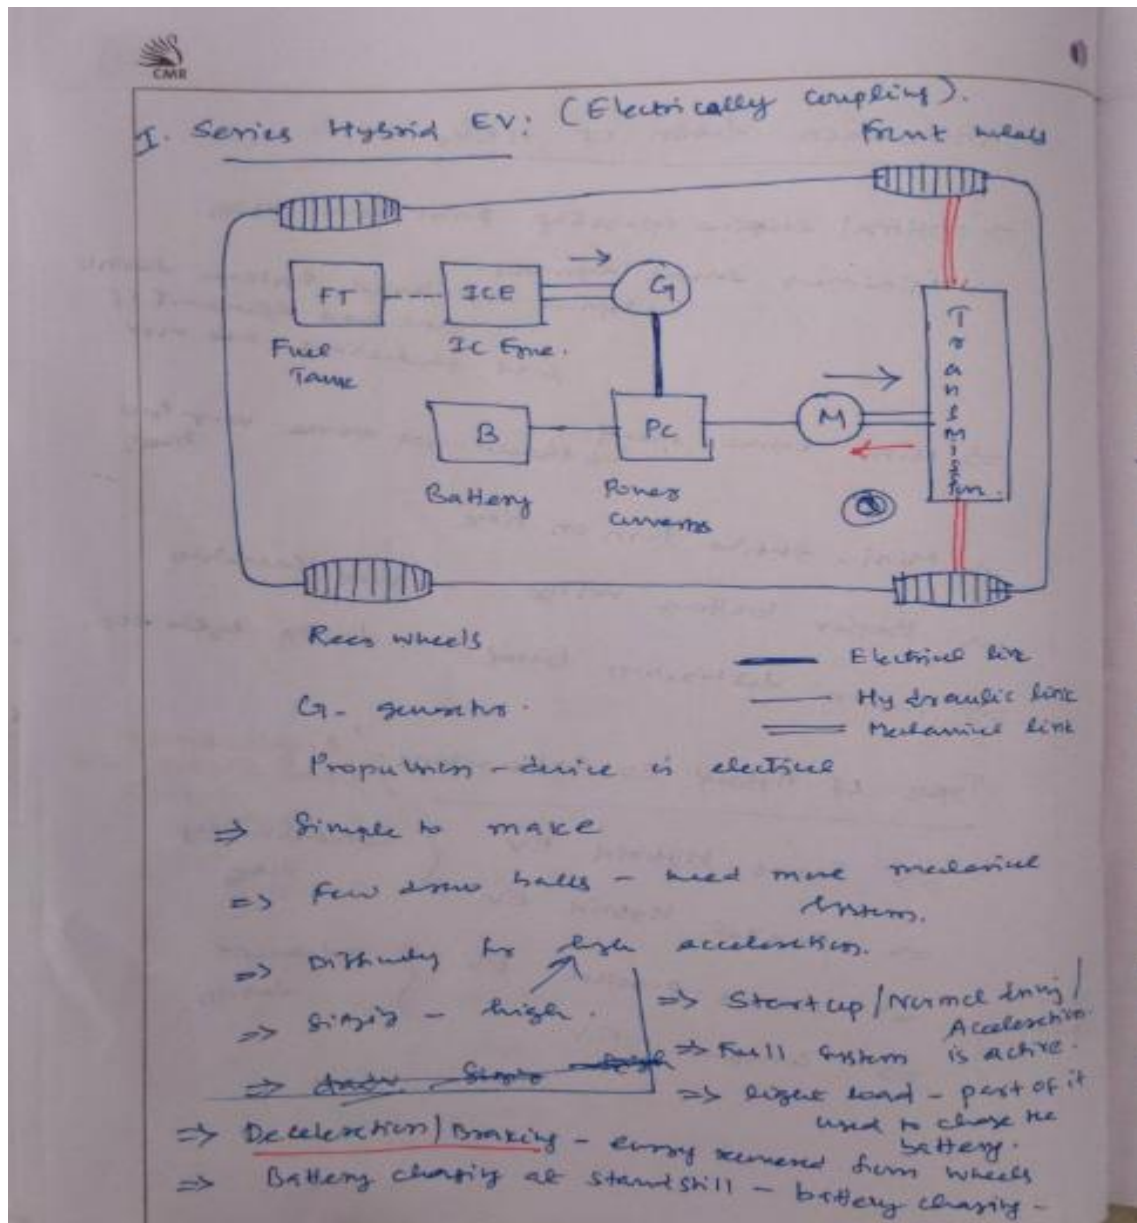 CMR
I. Series Hybrid EV: (Electrically coupling).
Front wheels
FT
ICE
G
Fuel
Tank
IC Eng.
Transmission
B
PC
M
Battery
Power
converters
Rear wheels
Electrical link
Hydraulic link
Mechanical link
G - generator.
Propulsion - device is electrical
⇒ Simple to make
⇒ Few draw backs - need more mechanical
system.
⇒ Difficulty for high acceleration.
⇒ Sizing - high.
⇒ Start up/Normal driving/
Acceleration.
⇒ Full system is active.
⇒ light load - part of it
used to charge the
battery.
⇒ Deceleration/Braking - energy recovered from wheels
⇒ Battery charging at standstill - battery charging -